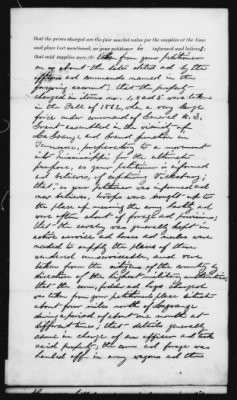 that the prices charged are the fair market value for the supplies at the time
and place last mentioned, as your petitioner is informed and believes;
that said supplies were (8) taken from your petitioner
on or about the dates stated and by the
officers and commands named in the
foregoing account; that the property
charged in items no. 1, and 5 were taken
in the Fall of 1862, when a very large
force under command of General U. S.
Grant assembled in the vicinity of
LaGrange and Grand Junction in
Tennessee, preparatory to a movement
into Mississippi for the ultimate
purpose, as your petitioner is informed
and believes, of capturing Vicksburg;
that, as your petitioner was informed and
now believes, troops were brought up to
the place of massing the army hastily and
were often short of forage and provisions;
that the cavalry was generally kept in
active service and horses and mules were
needed to supply the places of those
rendered unserviceable, and were
taken from the citizens of the country by
direction of the military
that the corn, fodder and hogs charged
was taken from your petitioner's place situate
about four miles north of LaGrange
during a period of about one month at
different times; that details generally
came in charge of an officer and took
said property; the corn and forage was
hauled off in army wagons and the